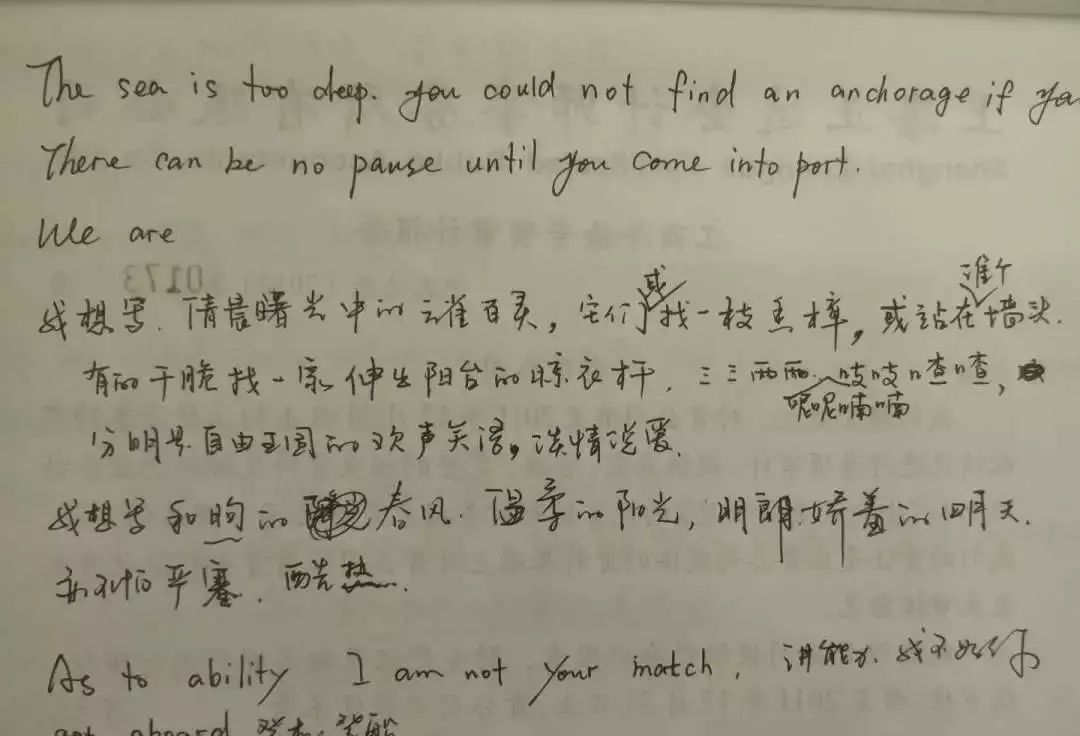 The sea is too deep. you could not find an anchorage if you
There can be no pause until you come into port.
We are
我想写、清晨曙光中的云雀百灵，它们或找一枝香樟，或站在谁个墙头.
有的干脆找一家伸出阳台的晾衣杆. 三三两两、吱吱喳喳，
呢呢喃喃
分明是自由王国的欢声笑语，谈情说爱.
我想写和煦的春风. 温柔的阳光，明朗娇羞的四月天.
亦不怕严寒、酷热.
As to ability I am not your match, 讲能力、我不如你
get aboard 登机、登船
0173